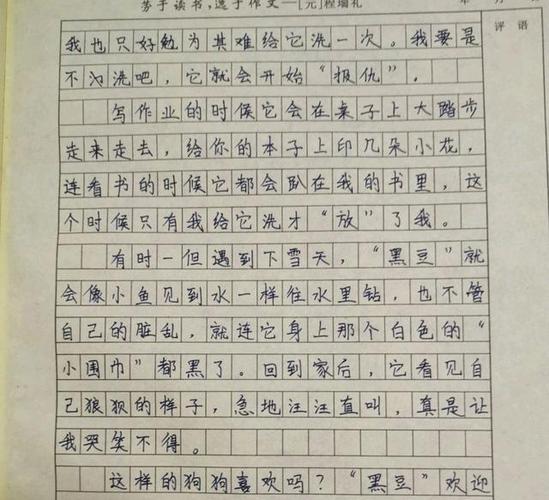 劳于读书，逸于作文—[元]程端礼
评 语
我也只好勉为其难给它洗一次。我要是
不沟洗吧，它就会开始“报仇”．
写作业的时候它会在桌子上大踏步
走来走去，给你的本子上印几朵小花，
连看书的时候它都会趴在我的书里，这
个时候只有我给它洗才“放”了我。
有时一但遇到下雪天，“黑豆”就
会像小鱼见到水一样往水里钻，也不管
自己的脏乱，就连它身上那个白色的“
小围巾”都黑了。回到家后，它看见自
己狼狈的样子，急地汪汪直叫，真是让
我哭笑不得。
这样的狗狗喜欢吗？“黑豆”欢迎